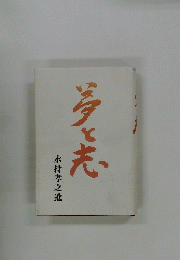 夢と志
木村孝之進